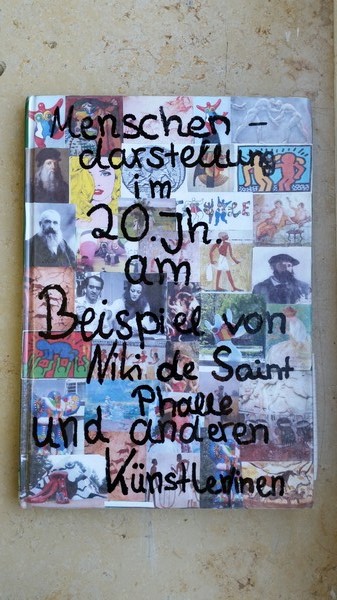 Menschen -
darstellung
im
20. Jh.
am
Beispiel von
Niki de Saint
Phalle
und anderen
Künstlerinen